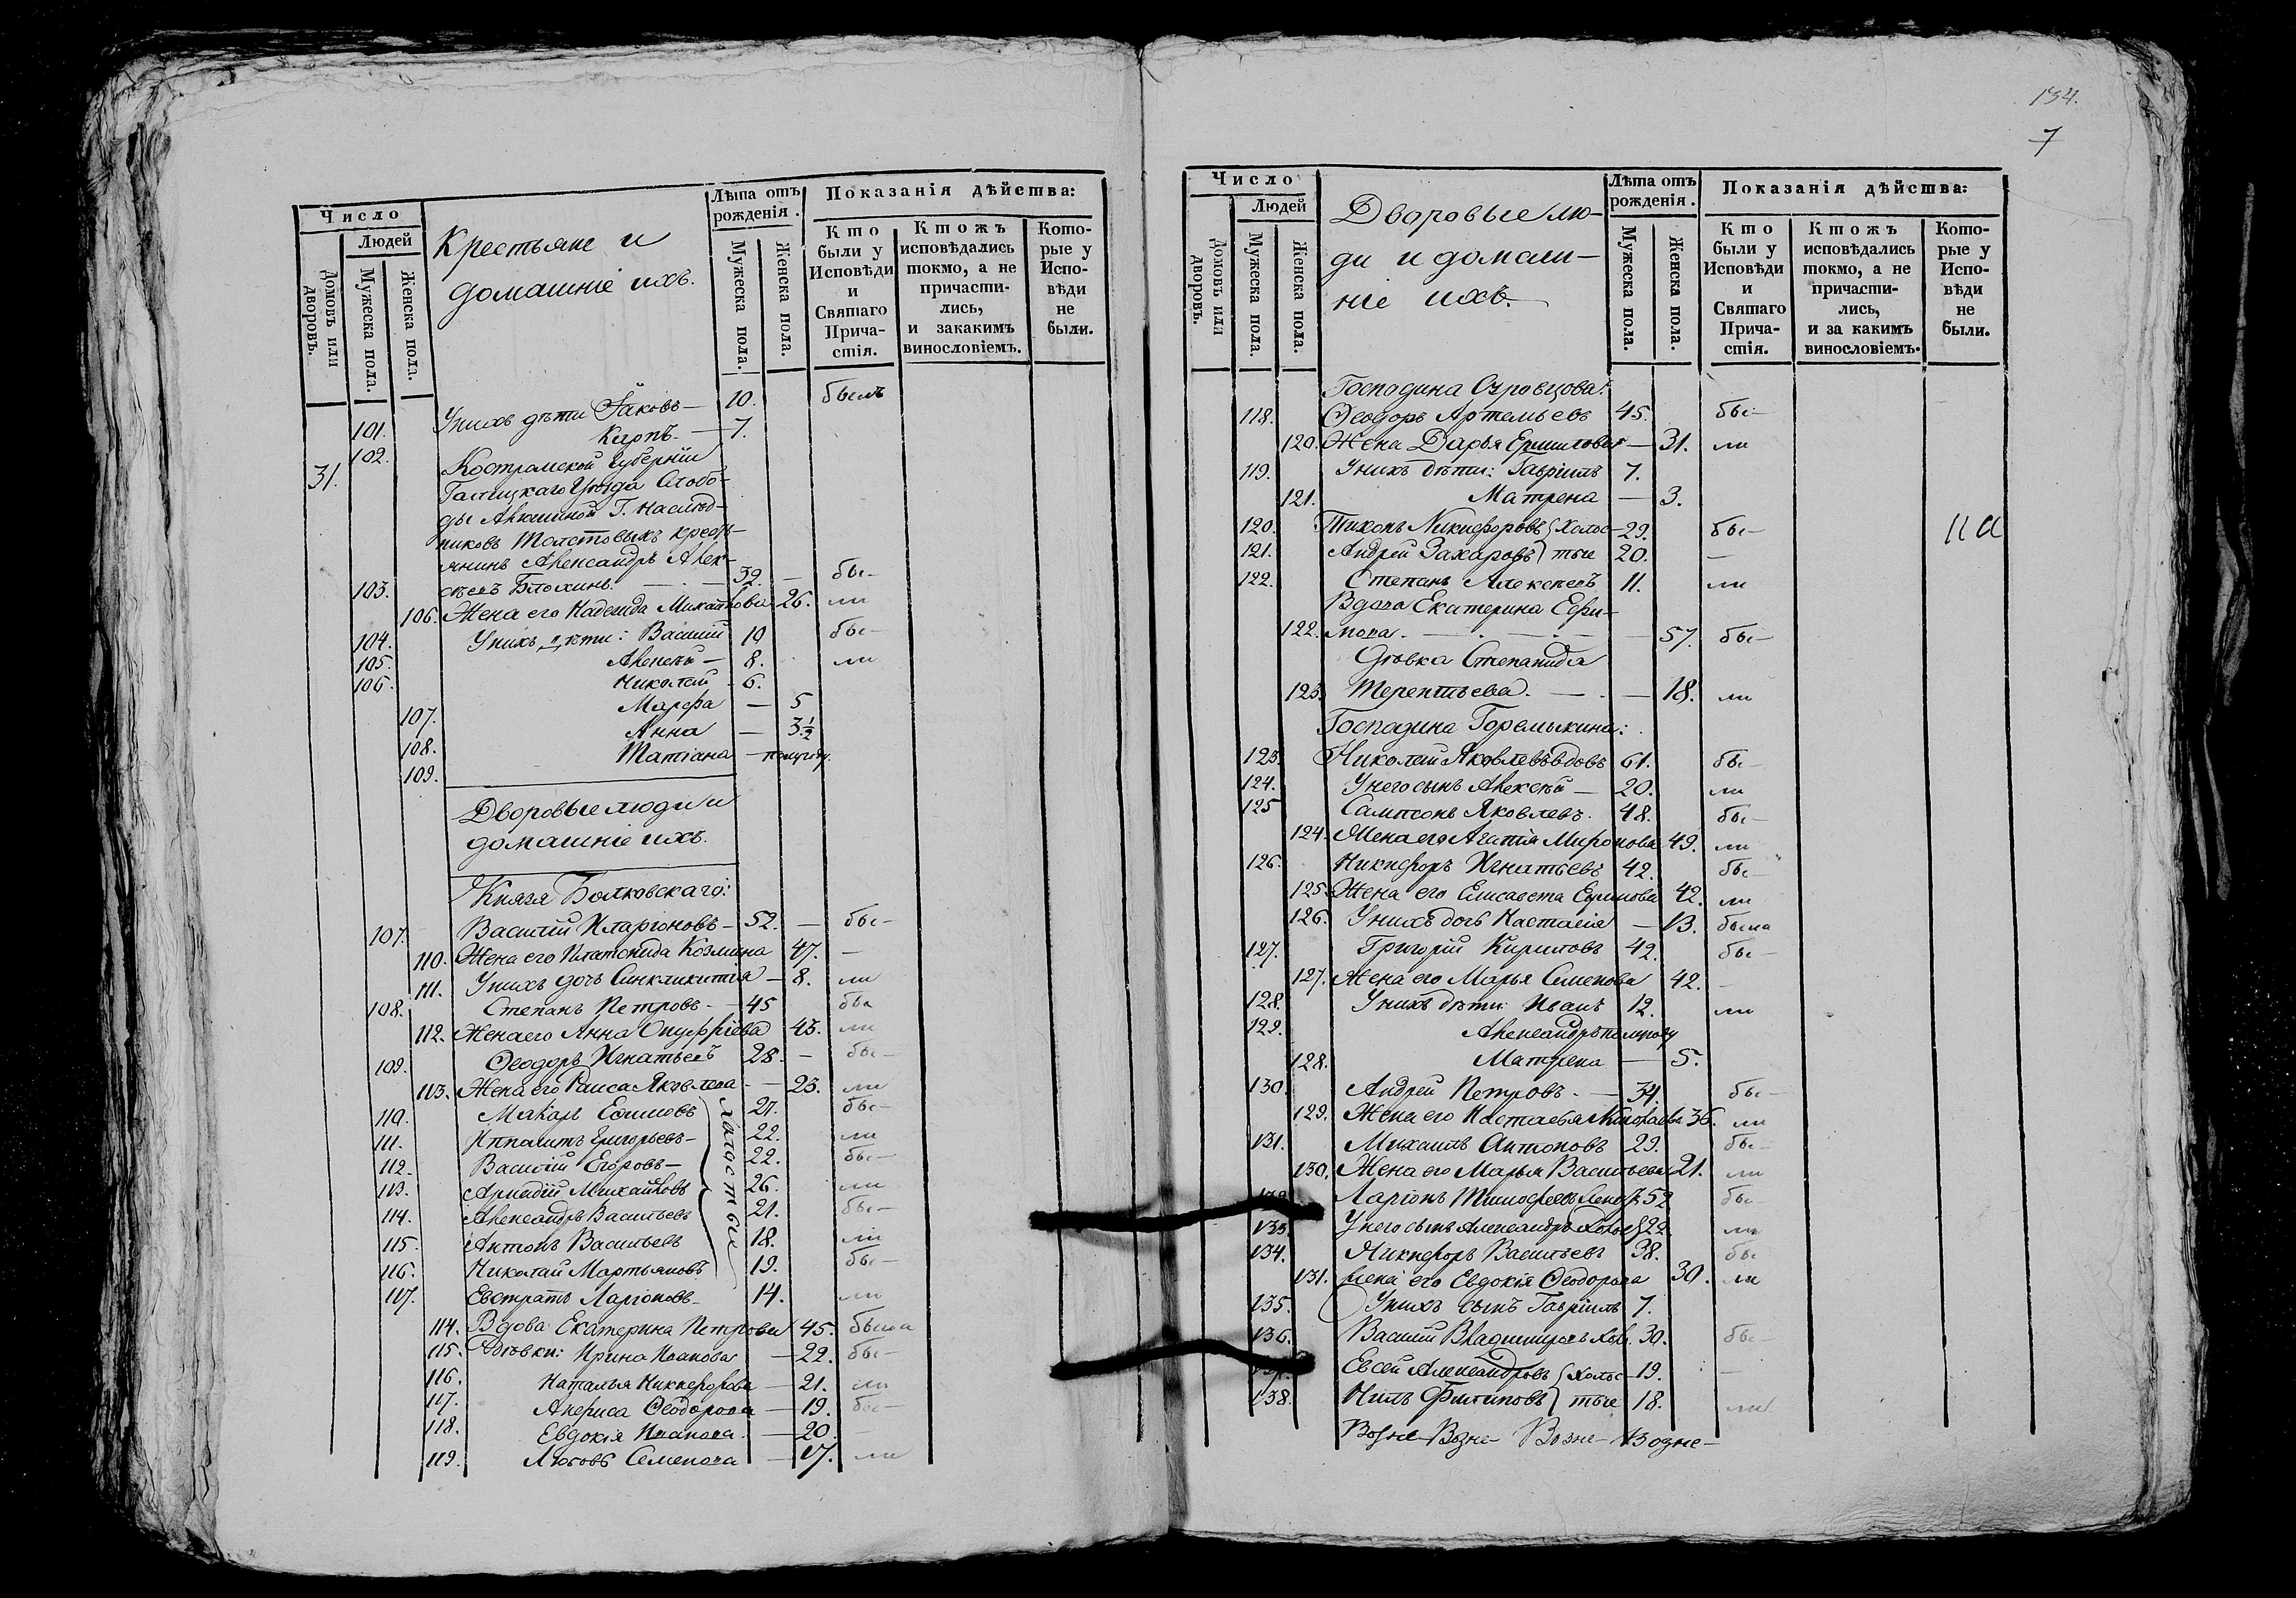 Число
Людей
Домовъ или дворовъ.
Мужеска пола.
Женска пола.
Крестьяне и
домашніе ихъ.
Лѣта отъ рожденія.
Мужеска пола.
Женска пола.
Показанія дѣйства:
Кто были у Исповѣди и Святаго Прича-стія.
Ктожъ исповѣдались токмо, а не причасти-лись, и закакимъ винословіемъ.
Кото-рые у Испо-вѣди не были.
101. У нихъ дѣти Іаковъ — 10. былъ
102. Карпъ. — 7.
31. Костромской губерніи
Галицкаго Уѣзда Слобо-
ды Г. Наслѣд-
никовъ Толстовыхъ кресть-
янинъ Александръ Алек-
103. сѣевъ Блохинъ. — 32. — бы-
106. Жена его Надежда Михайлова 26. ли
104. У нихъ дѣти: Василій 10 бы-
105. Алексѣй — 8. ли
106. Николай — 6.
107. Марфа — 5
108. Анна — 3½
109. Татіана — полугоду
Дворовые люди и
домашніе ихъ.
Князя Волковскаго:
107. Василій Иларіоновъ — 52. — бы-
110. Жена его Платонида Козмина 47. —
111. У нихъ дочь Синклитикія — 8. ли
108. Степанъ Петровъ — 45 бы
112. Жена его Анна Онуфріева 43. ли
109. Ѳеодоръ Игнатьевъ 28. — бы-
113. Жена его Раиса Яковлева — 23. ли
холостые
110. Макаръ Ефимовъ 27. бы-
111. Ипполитъ Григорьевъ — 22. ли
112. Василій Егоровъ — 22. бы-
113. Аркадій Михайловъ 26. ли
114. Александръ Васильевъ 21. бы-
115. Антонъ Васильевъ 18. ли
116. Николай Мартьяновъ 19. бы-
117. Евстратъ Ларіоновъ 14. ли
114. Вдова Екатерина Петрова 45. была
115. Дѣвки: Ирина Иванова — 22. бы-
116. Наталья Никифорова — 21. ли
117. Анфиса Ѳеодорова — 19. бы-
118. Евдокія Иванова — 20. —
119. Любовь Семенова — 17. ли
134.
7
Число
Людей
Домовъ или дворовъ.
Мужеска пола.
Женска пола.
Дворовые лю-
ди и домаш-
ніе ихъ.
Лѣта отъ рожденія.
Мужеска пола.
Женска пола.
Показанія дѣйства:
Кто были у Исповѣди и Святаго Прича-стія.
Ктожъ исповѣдались токмо, а не причасти-лись, и за какимъ винословіемъ.
Кото-рые у Испо-вѣди не были.
Господина
118. Ѳеодоръ Артемьевъ 45. бы-
120. Жена Дарья Ермилова — 31. ли
119. У нихъ дѣти: Гавріилъ 7.
121. Матрена — 3.
120. Тихонъ Никифоровъ } Холос- 29. бы-
121. Андрей Захаровъ } тые 20. —
122. Степанъ Алексѣевъ 11. ли
Вдова Екатерина Ефи-
122. мова. — 57. бы-
Дѣвка Степанида
123. Терентьева. — 18. ли
Господина Горемыкина:
123. Николай Яковлевъ вдовъ 61. бы-
124. У него сынъ Алексѣй — 20. ли
125 Сампсонъ Яковлевъ. 48. бы-
124. Жена его Агапія Миронова 49. ли
126. Никифоръ Игнатьевъ 42. бы-
125. Жена его Елисавета Ефимова 42. ли
126. У нихъ дочь Настасія — 13. была
127. Григорій Кириловъ 42. бы-
127. Жена его Марья Семенова 42. —
128. У нихъ дѣти: Иванъ 12. ли
129. Александръ полугоду
128. Матрена — 5.
130. Андрей Петровъ. — 34. бы-
129. Жена его Настасья 36. ли
131. Михаилъ Антоновъ 29. бы-
130. Жена его Марья Васильева 21. ли
Ларіонъ Тимофеевъ 52 бы-
133. У него сынъ Александръ Холос 22. ли
134. Никифоръ Васильевъ 38. бы-
131. Жена его Евдокія Ѳеодорова 30. ли
135. У нихъ сынъ Гавріилъ 7.
136. Василій Владимировъ Хол. 30. бы-
Евсей Александровъ } Холос- 19. —
138. Нилъ Филиповъ } тые 18. ли
Возне- Возне- Возне- Возне-